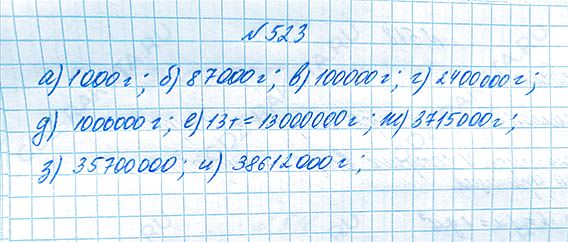 №523
а) 1000г; б) 87000г; в) 100000г; г) 2400000г;
д) 1000000г; е) 13т = 13000000г; ж) 3715000г;
з) 35700000; и) 38612000г;